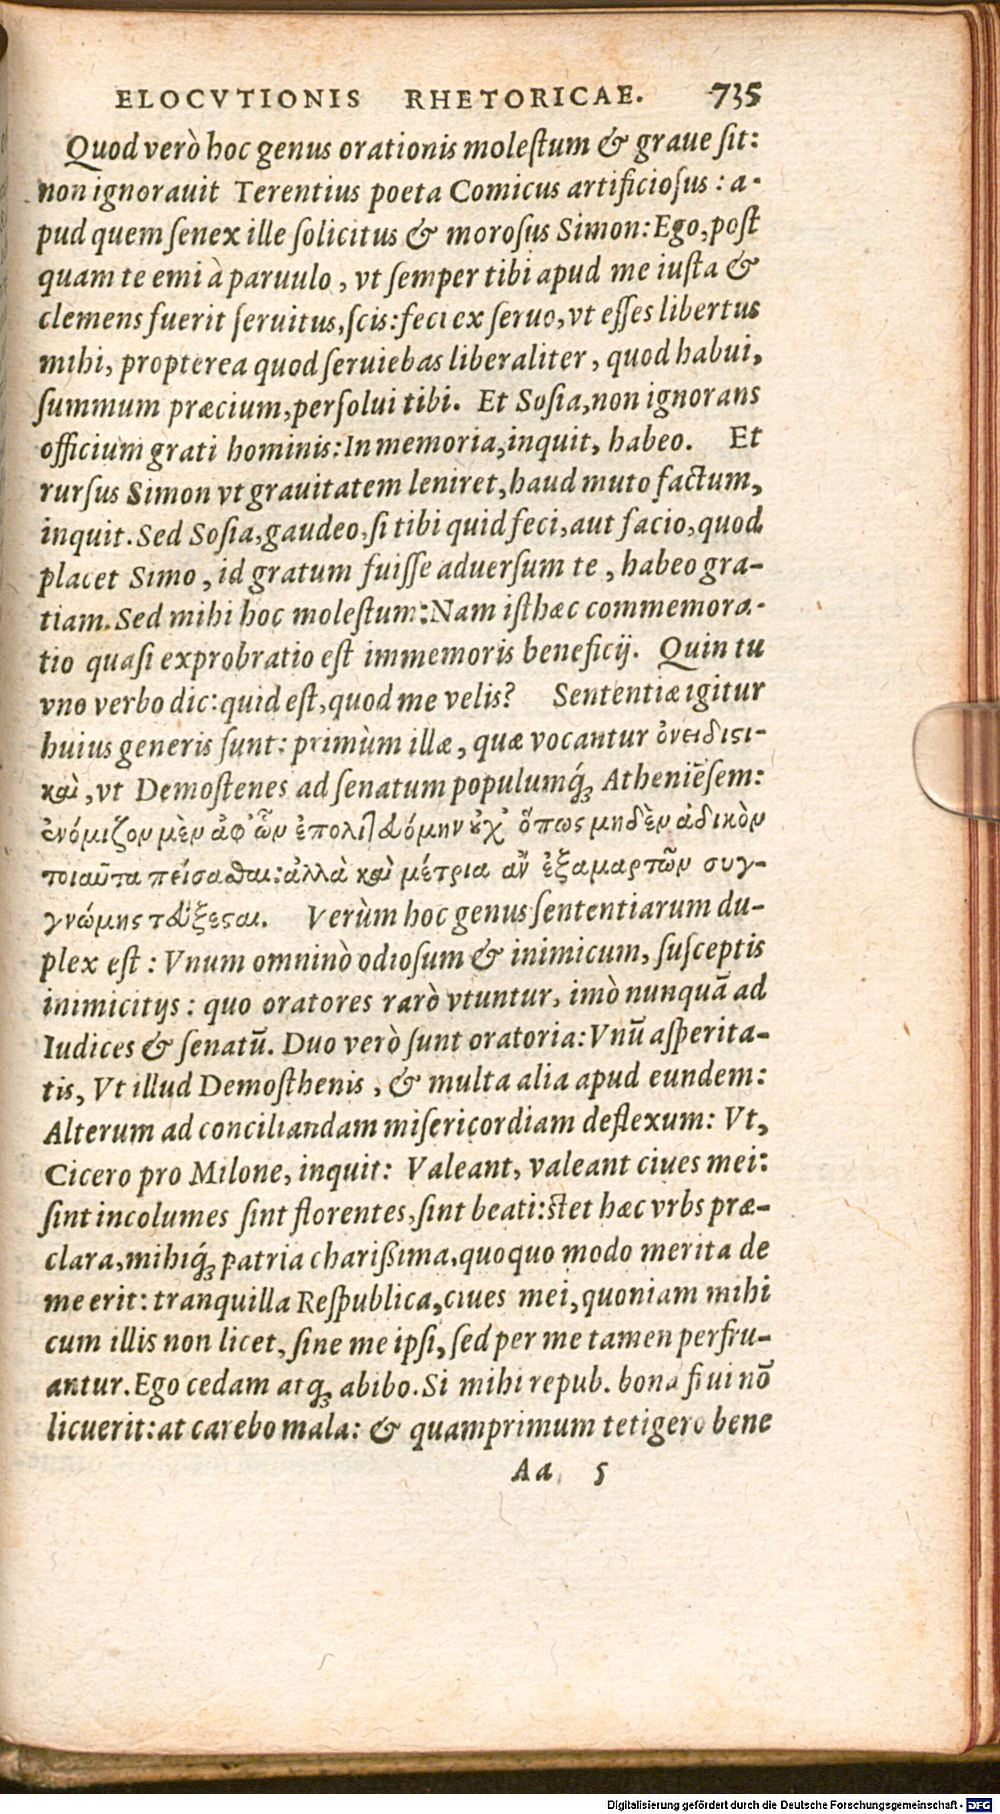 ELOCVTIONIS RHETORICAE. 735
Quod verò hoc genus orationis molestum & graue sit:
non ignorauit Terentius poeta Comicus artificiosus: a-
pud quem senex ille solicitus & morosus Simon: Ego, post
quam te emi à paruulo, vt semper tibi apud me iusta &
clemens fuerit seruitus, scis: feci ex seruo, vt esses libertus
mihi, propterea quod seruiebas liberaliter, quod habui,
summum præcium, persolui tibi. Et Sosia, non ignorans
officium grati hominis: In memoria, inquit, habeo. Et
rursus Simon vt grauitatem leniret, haud muto factum,
inquit. Sed Sosia, gaudeo, si tibi quid feci, aut facio, quod
placet Simo, id gratum fuisse aduersum te, habeo gra-
tiam. Sed mihi hoc molestum: Nam isthæc commemora-
tio quasi exprobratio est immemoris beneficij. Quin tu
vno verbo dic: quid est, quod me velis? Sententiæ igitur
huius generis sunt: primùm illæ, quæ vocantur ὀνειδιςι-
καὶ, vt Demostenes ad senatum populumq́; Atheniēsem:
ἐνόμιζον μὲν ἀφ᾽ ὧν ἐπολιτευόμην οὐχ᾽ ὅπως μηδὲν ἀδικὸν
ποιαῦτα πείσαθαι: ἀλλὰ καὶ μέτρια ἂν ἐξαμαρτῶν συγ-
γνώμης τεύξεςαι. Verùm hoc genus sententiarum du-
plex est: Vnum omninò odiosum & inimicum, susceptis
inimicitijs: quo oratores rarò vtuntur, imò nunquā ad
Iudices & senatū. Duo verò sunt oratoria: Vnū asperita-
tis, Vt illud Demosthenis, & multa alia apud eundem:
Alterum ad conciliandam misericordiam deflexum: Vt,
Cicero pro Milone, inquit: Valeant, valeant ciues mei:
sint incolumes sint florentes, sint beati: stet hæc vrbs præ-
clara, mihiq́; patria charißima, quoquo modo merita de
me erit: tranquilla Respublica, ciues mei, quoniam mihi
cum illis non licet, sine me ipsi, sed per me tamen perfru-
antur. Ego cedam atq; abibo. Si mihi repub. bona frui nō
licuerit: at carebo mala: & quamprimum tetigero bene
Aa 5
Digitalisierung gefördert durch die Deutsche Forschungsgemeinschaft - DFG